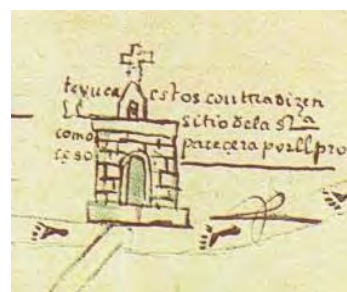 teyuca estos contradizen
sitio de la sra
como parecera por ll pro
ceso